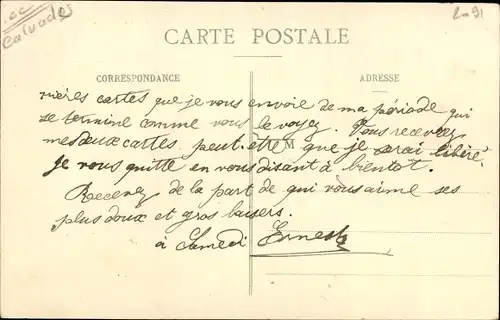 Calvados
2-91
CARTE POSTALE
CORRESPONDANCE
ADRESSE
nières cartes que je vous envoie de ma période qui
se termine comme vous le voyez. Vous recevrez
mes deux cartes peut-être M que je serai libéré.
Je vous quitte en vous disant à bientôt.
Recevez de la part de qui vous aime ses
plus doux et gros baisers.
à Samedi Ernest